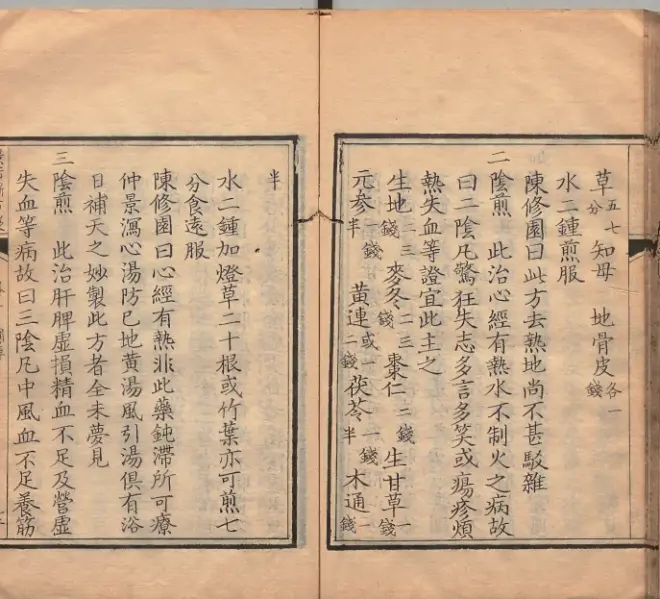 草五七分 知母 地骨皮各一錢
水二鍾煎服
陳修園曰此方去熱地尚不甚駁雜
二陰煎 此治心經有熱水不制火之病故
曰二陰凡驚狂失志多言多笑或瘍疹煩
熱失血等證宜此主之
生地二三錢 麥冬二三錢 棗仁二錢 生甘草一錢
元參一錢半 黃連或一二錢 茯苓一錢半 木通一錢
半
水二鍾加燈草二十根或竹葉亦可煎七
分食遠服
陳修園曰心經有熱非此藥鈍滯所可療
仲景瀉心湯防巳地黃湯風引湯俱有浴
日補天之妙製此方者全未夢見
三陰煎 此治肝脾虛損精血不足及營虛
失血等病故曰三陰凡中風血不足養筋